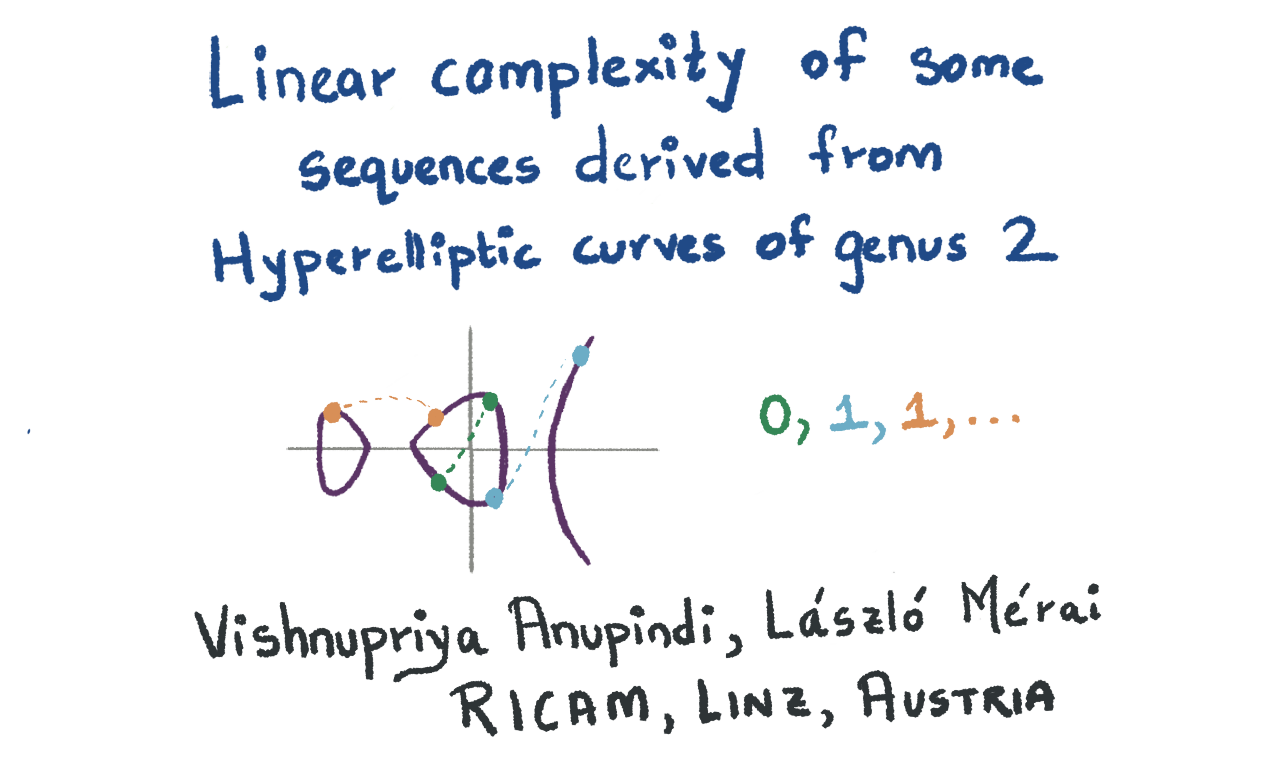 Linear complexity of some
sequences derived from
Hyperelliptic curves of genus 2
0, 1, 1, ...
Vishnupriya Anupindi, László Mérai
RICAM, LINZ, AUSTRIA